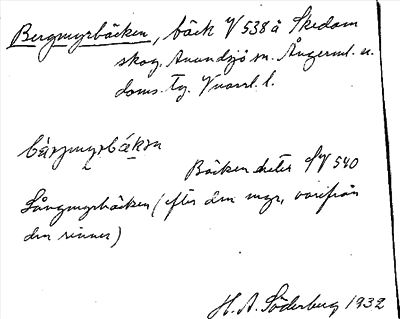 Bergmyrbäcken, bäck V 538 å Skedom
skog, Anundsjö sn. Ångerml. n.
doms. Tg. Vnorrl. l.
bärjmyrbäkən
Bäcken heter SV 540
Långmyrbäcken (efter den myr, varifrån
den rinner)
H. A. Söderberg 1932